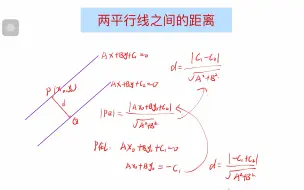 两平行线之间的距离
Ax+By+C₁=0
P(x₀,y₀)
Ax+By+C₂=0
d
Q
d = |C₁-C₂| / √(A²+B²)
|PQ| = |Ax₀+By₀+C₂| / √(A²+B²)
P∈l₁ Ax₀+By₀+C₁=0
Ax₀+By₀=-C₁
d = |-C₁+C₂| / √(A²+B²)